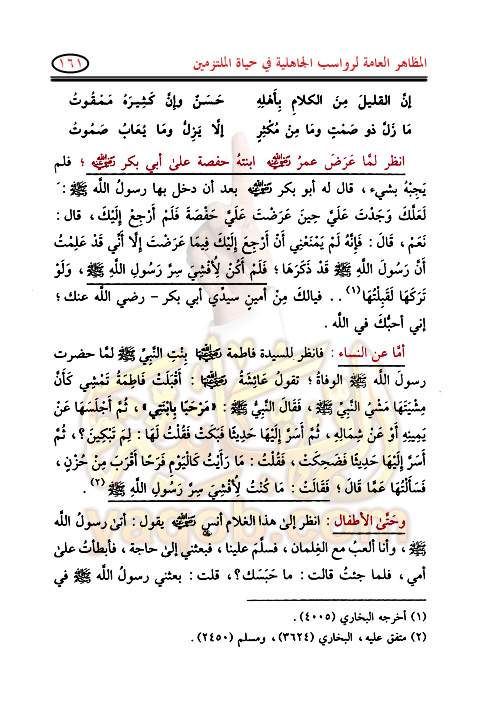 المظاهر العامة لرواسب الجاهلية في حياة الملتزمين
١٦١
إنَّ القليلَ مِنَ الكلامِ بِأَهلِهِ حَسَنٌ وإنَّ كَثِيرَهُ مَمْقُوتُ
مَا زَلَّ ذو صَمْتٍ ومَا مِنْ مُكْثِرٍ إلَّا يَزِلُّ ومَا يُعَابُ صَمُوتُ
انظر لمَّا عَرَضَ عمرُ رضي الله عنه ابنتهُ حفصة علىٰ أبي بكر رضي الله عنه ؛ فلم
يَجِبْهُ بشيء ، قال له أبو بكر رضي الله عنه بعد أن دخل بها رسولُ اللَّه ﷺ :
لَعَلَّكَ وَجَدْتَ عَلَيَّ حِينَ عَرَضْتَ عَلَيَّ حَفْصَةَ فَلَمْ أَرْجِعْ إِلَيْكَ ، قال :
نَعَمْ ، قَالَ : فَإِنَّهُ لَمْ يَمْنَعْنِي أَنْ أَرْجِعَ إِلَيْكَ فِيمَا عَرَضْتَ إِلَّا أَنِّي قَدْ عَلِمْتُ
أَنَّ رَسُولَ اللَّهِ ﷺ قَدْ ذَكَرَهَا ؛ فَلَمْ أَكُنْ لِأُفْشِيَ سِرَّ رَسُولِ اللَّهِ ﷺ ، وَلَوْ
تَرَكَهَا لَقَبِلْتُهَا(١) . . فيالكَ مِنْ أمينٍ سيدِّي أبي بكر – رضي اللَّه عنك ؛
إني أحبُّكَ في اللَّه .
أمَّا عن النساء : فانظر للسيدة فاطمة رضي الله عنها بِنْتِ النَّبِيِّ ﷺ لمَّا حضرت
رسولَ اللَّه ﷺ الوفاةُ ؛ تقولُ عَائِشَةُ رضي الله عنها : أَقْبَلَتْ فَاطِمَةُ تَمْشِي كَأَنَّ
مِشْيَتَهَا مَشْيُ النَّبِيِّ ﷺ ، فَقَالَ النَّبِيُّ ﷺ : «مَرْحَبًا بِابْنَتِي» ، ثُمَّ أَجْلَسَهَا عَنْ
يَمِينِهِ أَوْ عَنْ شِمَالِهِ ، ثُمَّ أَسَرَّ إِلَيْهَا حَدِيثًا فَبَكَتْ فَقُلْتُ لَهَا : لِمَ تَبْكِينَ ؟ ، ثُمَّ
أَسَرَّ إِلَيْهَا حَدِيثًا فَضَحِكَتْ ، فَقُلْتُ : مَا رَأَيْتُ كَالْيَوْمِ فَرَحًا أَقْرَبَ مِنْ حُزْنٍ ،
فَسَأَلْتُهَا عَمَّا قَالَ ؛ فَقَالَتْ : مَا كُنْتُ لِأُفْشِيَ سِرَّ رَسُولِ اللَّهِ ﷺ (٢) .
وحَتَّىٰ الأطفال : انظر إلىٰ هذا الغلام أنس رضي الله عنه يقول : أتىٰ رسولُ اللَّه
ﷺ ، وأنا ألعبُ مع الغِلمان ، فسلَّم علينا ، فبعثني إلىٰ حاجة ، فأبطأتُ علىٰ
أمي ، فلما جئتُ قالت : ما حَبَسَك ؟ ، قلت : بعثني رسولُ اللَّه ﷺ في
(١) أخرجه البخاري (٤٠٠٥) .
(٢) متفق عليه ، البخاري (٣٦٢٤) ، ومسلم (٢٤٥٠) .
yaqob.com